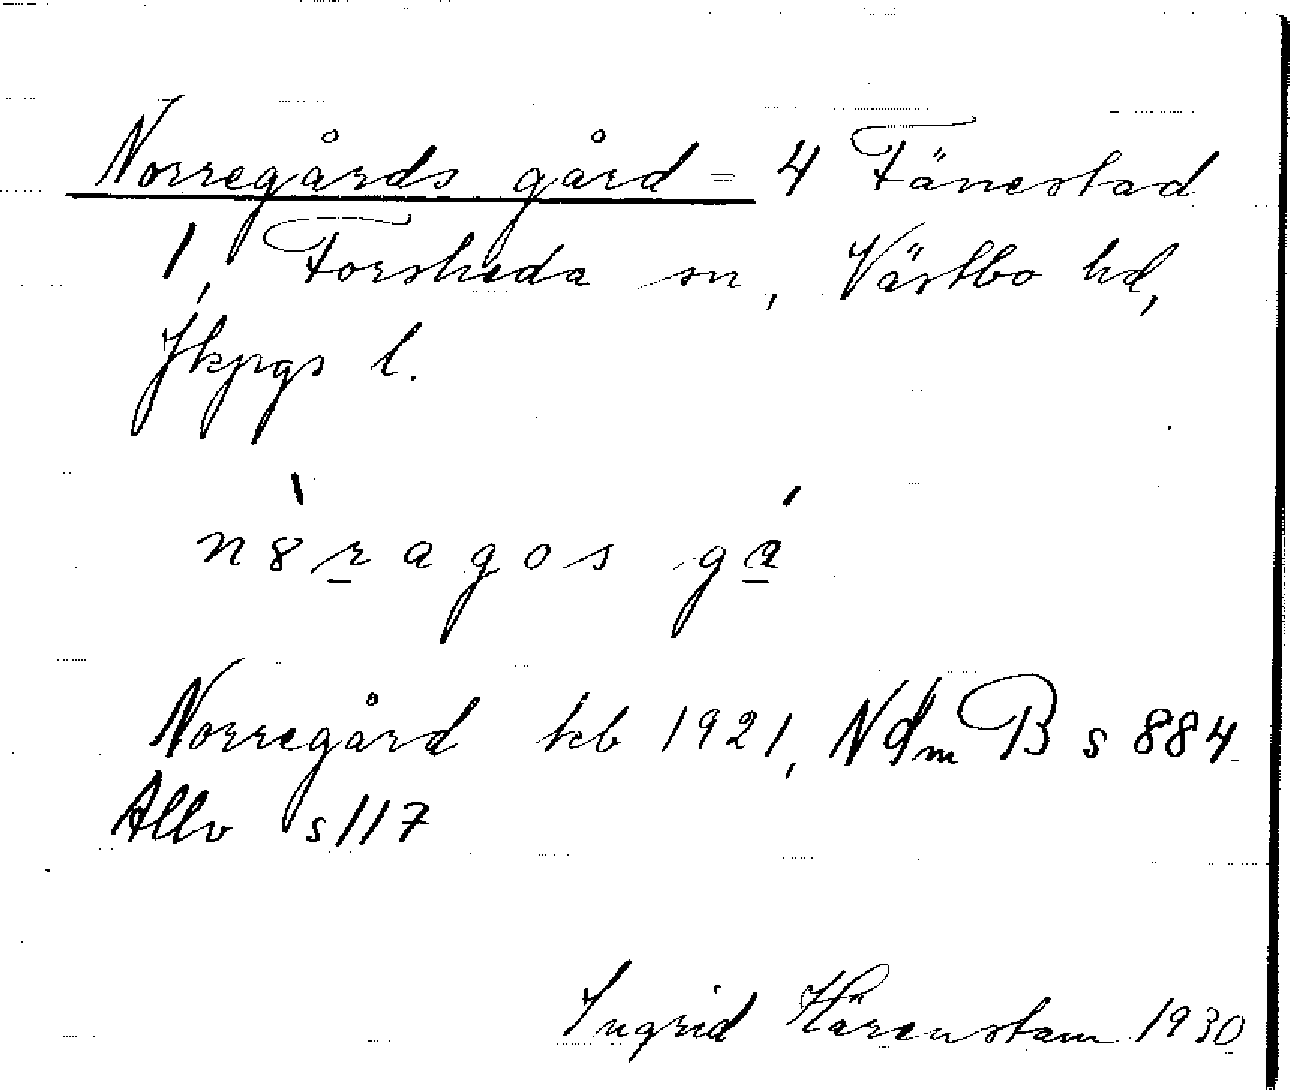 Norregårds gård = 4 Fänestad
1, Forsheda sn, Västbo hd,
Jkpgs l.
n8ragos ga
Norregård kb 1921, Ndm B s 884
Allv s 117
Ingrid Härenstam 1930